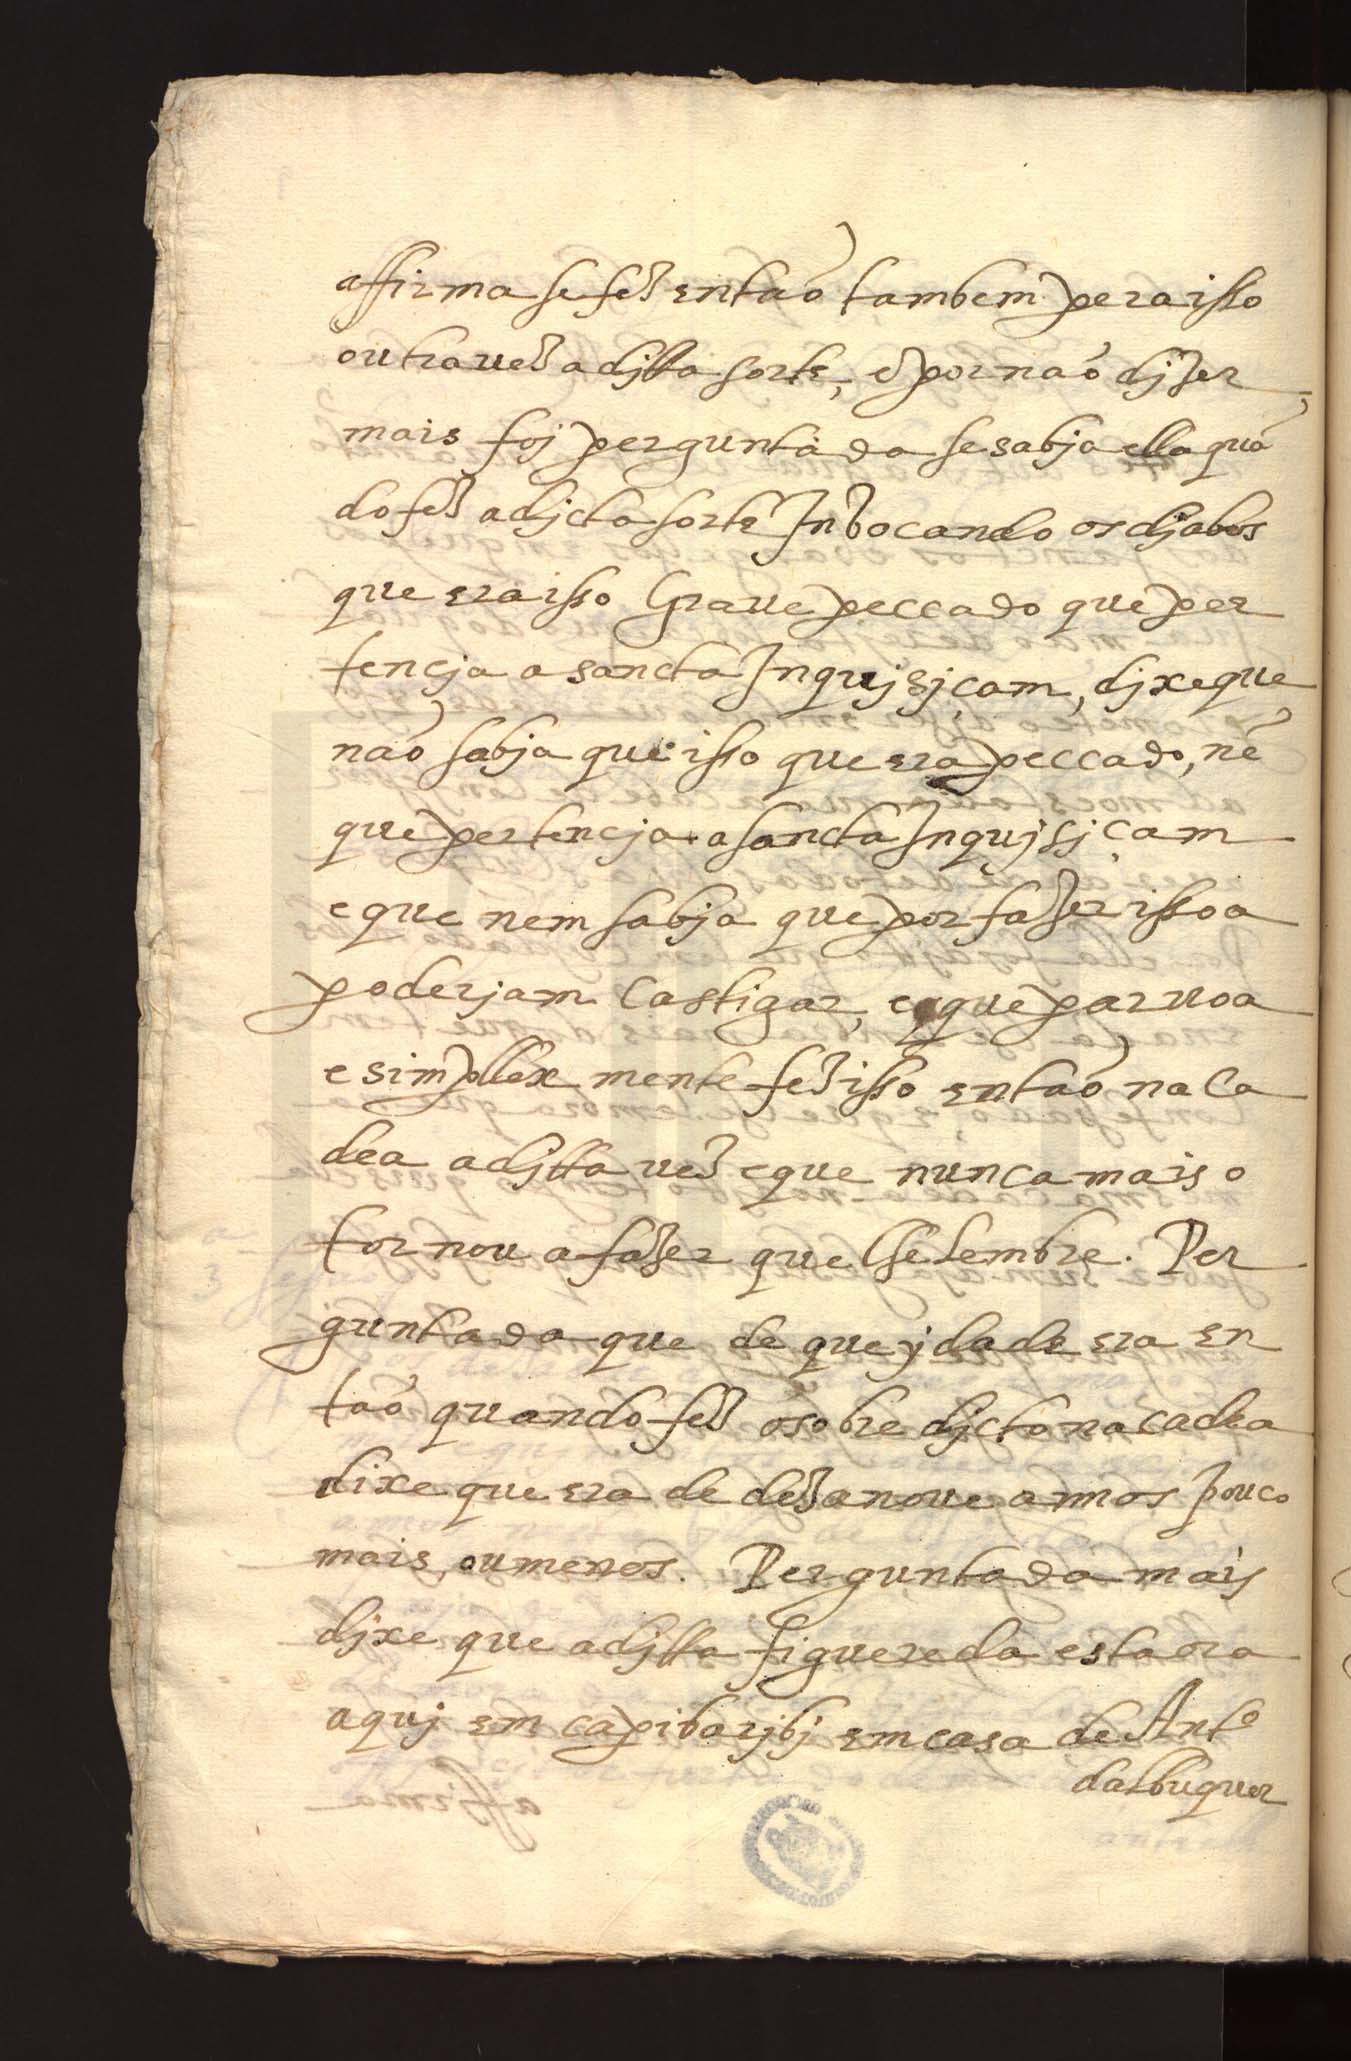 affirma se fez então tambem pera isso
outra vez a djtta sorte, e por não djzer
mais foj perguntada se sabja ella quã
do fez a djcta sorte Invocando os djabos
que era isso Grave peccado que per
tencja a sancta Inqujsjçam, djxe que
não sabja que isso que era peccado, nẽ
que pertencja a sancta Inqujsjçam
e que nem sabja que por fazer isso a
poderjam Castigar, e que parvoa
e simplex mente fez isso então na Ca
dea a djtta vez e que nunca mais o
tornou a fazer que lhe lembre. Per
guntada que de que jdade era en
tão quando fez o sobre djcto na cadea
dixe que era de dezanove annos pouco
mais ou menos. Perguntada mais
djxe que a djtta figuereda esta ora
aquj em capibarjbj em casa de Antº
dalbuquer